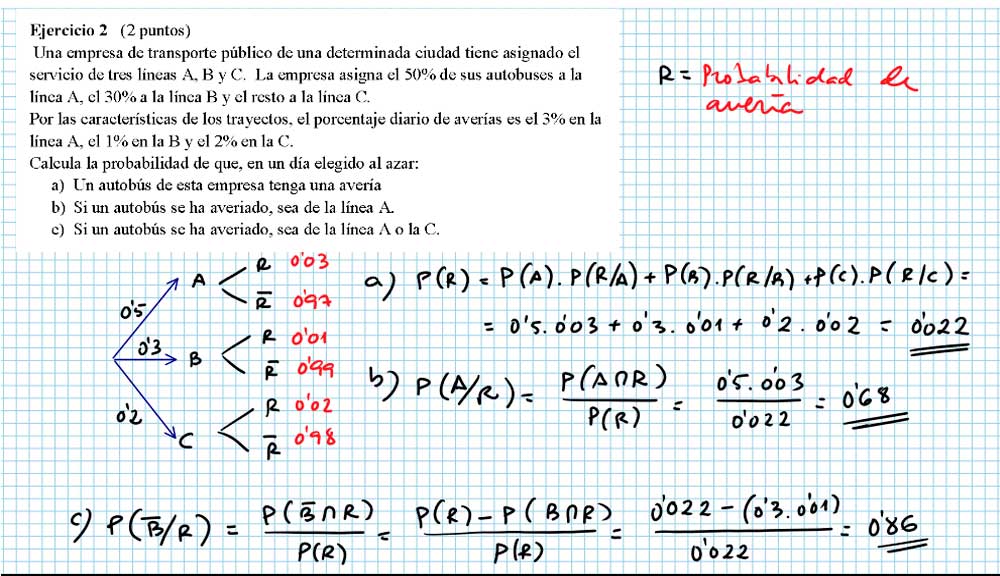 Ejercicio 2 (2 puntos)
Una empresa de transporte público de una determinada ciudad tiene asignado el
servicio de tres líneas A, B y C. La empresa asigna el 50% de sus autobuses a la
línea A, el 30% a la línea B y el resto a la línea C.
Por las características de los trayectos, el porcentaje diario de averías es el 3% en la
línea A, el 1% en la B y el 2% en la C.
Calcula la probabilidad de que, en un día elegido al azar:
a) Un autobús de esta empresa tenga una avería
b) Si un autobús se ha averiado, sea de la línea A.
c) Si un autobús se ha averiado, sea de la línea A o la C.
R = Probabilidad de
avería
0'5 A R 0'03
R̅ 0'97
0'3 B R 0'01
R̅ 0'99
0'2 C R 0'02
R̅ 0'98
a) P(R) = P(A). P(R/A) + P(B).P(R/B) + P(C).P(R/C) =
= 0'5. 0'03 + 0'3. 0'01 + 0'2. 0'02 = 0'022
b) P(A/R) = P(A∩R) / P(R) = 0'5. 0'03 / 0'022 = 0'68
c) P(B̅/R) = P(B̅∩R) / P(R) = P(R) - P(B∩R) / P(R) = 0'022 - (0'3. 0'01) / 0'022 = 0'86